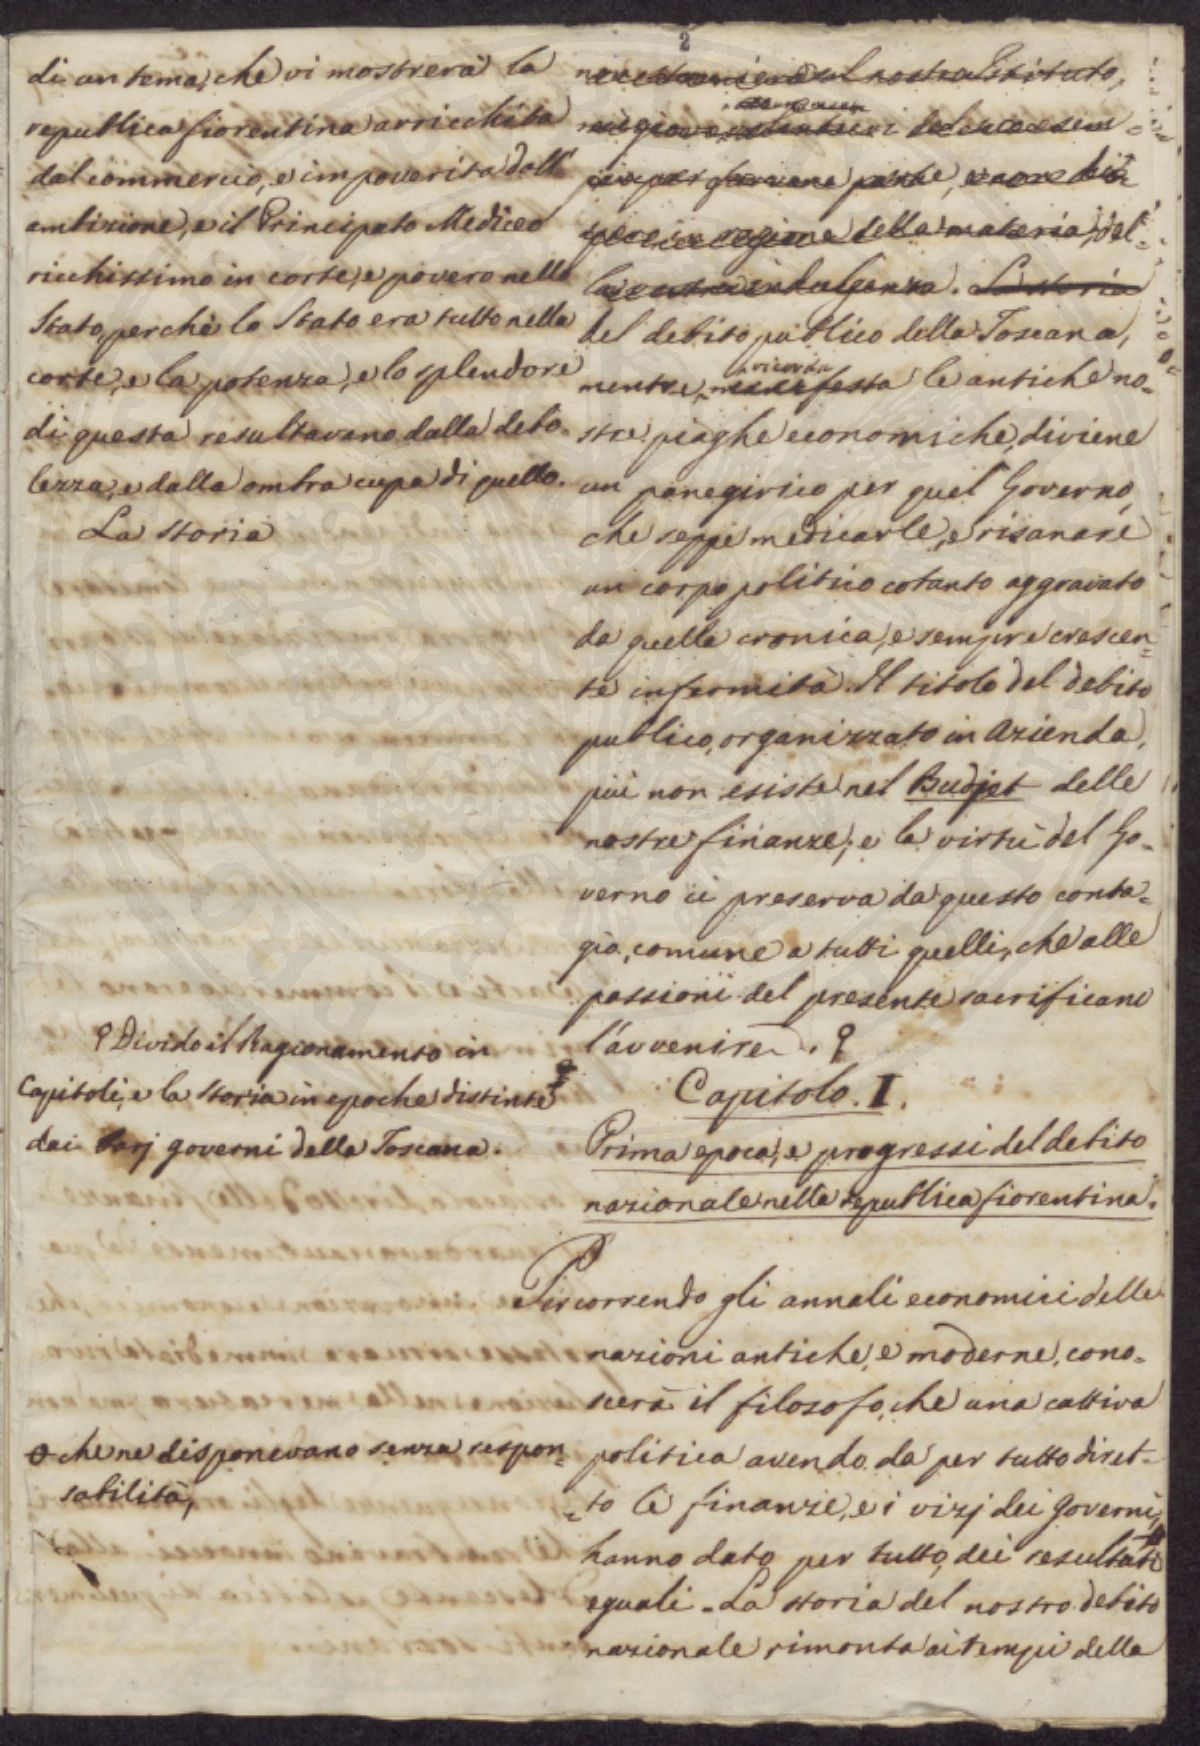 2
di un tema, che vi mostrerà la
republica fiorentina arricchita
dal commercio, e impoverita dall'
ambizione, e il Principato Mediceo
ricchissimo in corte, e povero nello
Stato, perchè lo Stato era tutto nella
corte, e la potenza, e lo splendore
di questa resultavano dalla debo-
lezza, e dalla ombra cupa di quello.
La storia
9 Divido il Ragionamento in
Capitoli, e la Storia in epoche distinte
dai varj governi della Toscana.
che ne disponevano senza respon-
sabilità,
nostro Istituto,
della materia, del-
la vostra indulgenza. La storia
del debito publico della Toscana,
ricorda
mentre, manifesta le antiche no-
stre piaghe economiche, diviene
un panegirico per quel Governo,
che seppe medicarle, e risanare
un corpo politico cotanto aggravato
da quella cronica, e sempre crescen-
te infermità. Il titolo del debito
publico, organizzato in azienda,
più non esiste nel Budjet delle
nostre finanze, e la virtù del Go-
verno ci preserva da questo conta-
gio, comune a tutti quelli, che alle
passioni del presente sacrificano
l'avvenire. 9
Capitolo. I.
Prima epoca, e progressi del debito
nazionale nella republica fiorentina.
Percorrendo gli annali economici delle
nazioni antiche, e moderne, cono-
scerà il filosofo, che una cattiva
politica avendo da per tutto diret-
to le finanze, e i vizj dei Governi,
hanno dato per tutto, dei resultati
eguali. La storia del nostro debito
nazionale rimonta ai tempi della